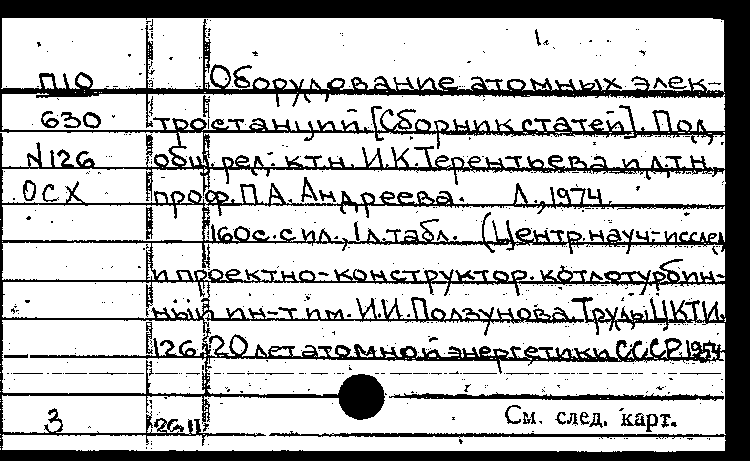 1.
П10 Оборудование атомных элек-
630 тростанций. [Сборник статей]. Под
N126 общ. ред. к.т.н. И.К.Терентьева и д.т.н.
ОСХ проф. П.А. Андреева. Л., 1974.
160с. с ил., 1л. табл. (Центр. науч.-исслед.
и проектно-конструктор. котлотурбин-
ный ин-т им. И.И.Ползунова. Труды ЦКТИ.
126. 20 лет атомной энергетики СССР. 1954
3 См. след. карт.